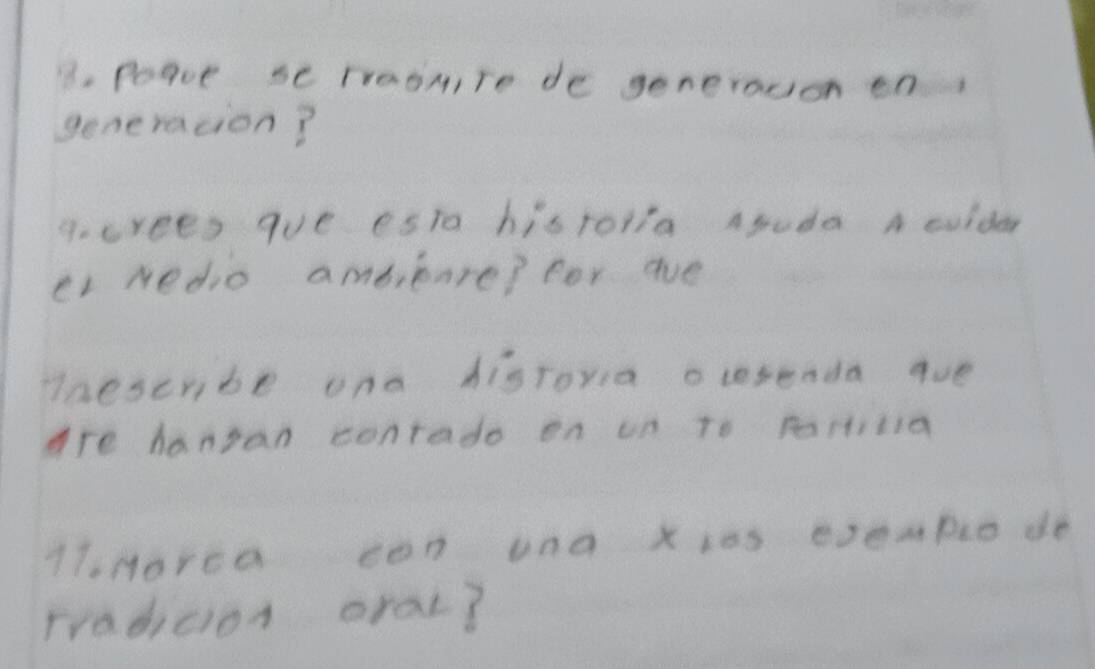 8. Poque se trasmite de generacion en
generacion?
9. crees que esta historia ayuda A cuidar
el Medio ambiente? Por que
escribe una historia o leyenda que
te hangan contado en un tu familia
11. Marca con una x los ejemplo de
tradicion oral?